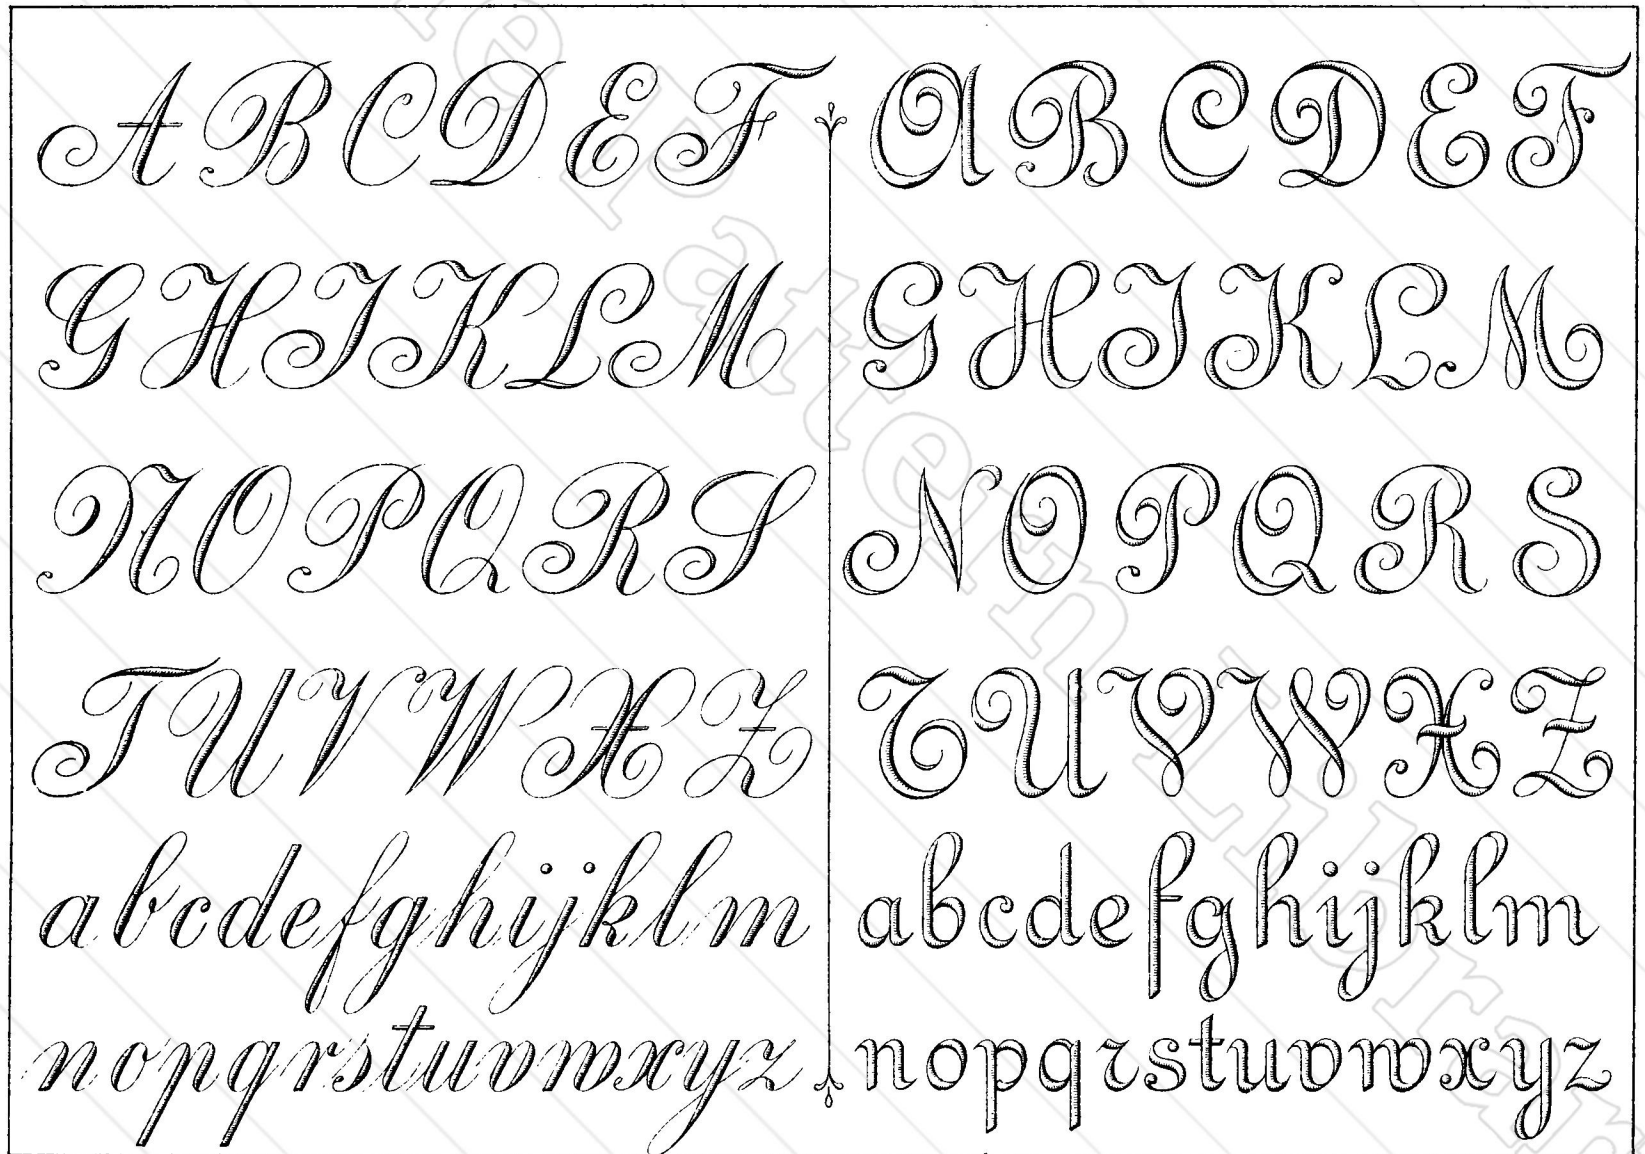 A B C D E F
G H I K L M
N O P Q R S
T U V W X Z
a b c d e f g h i j k l m
n o p q r s t u v w x y z
A B C D E F
G H I K L M
N O P Q R S
T U V W X Z
a b c d e f g h i j k l m
n o p q r s t u v w x y z
pattern Library